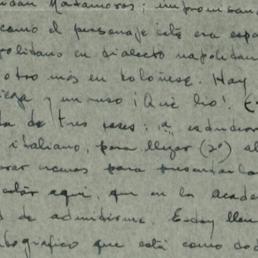 Matamoros; improvisan
como el personaje éste era espa
politano en dialecto napolitan
otro más en boloñese. Hay
griega y un ruso ¡Qué lío!
de tres meses; a
italiano, para llegar (2º) al
para presentarla
aquí, que en la acade
de admitirme. Estoy llen
bográfico que está como